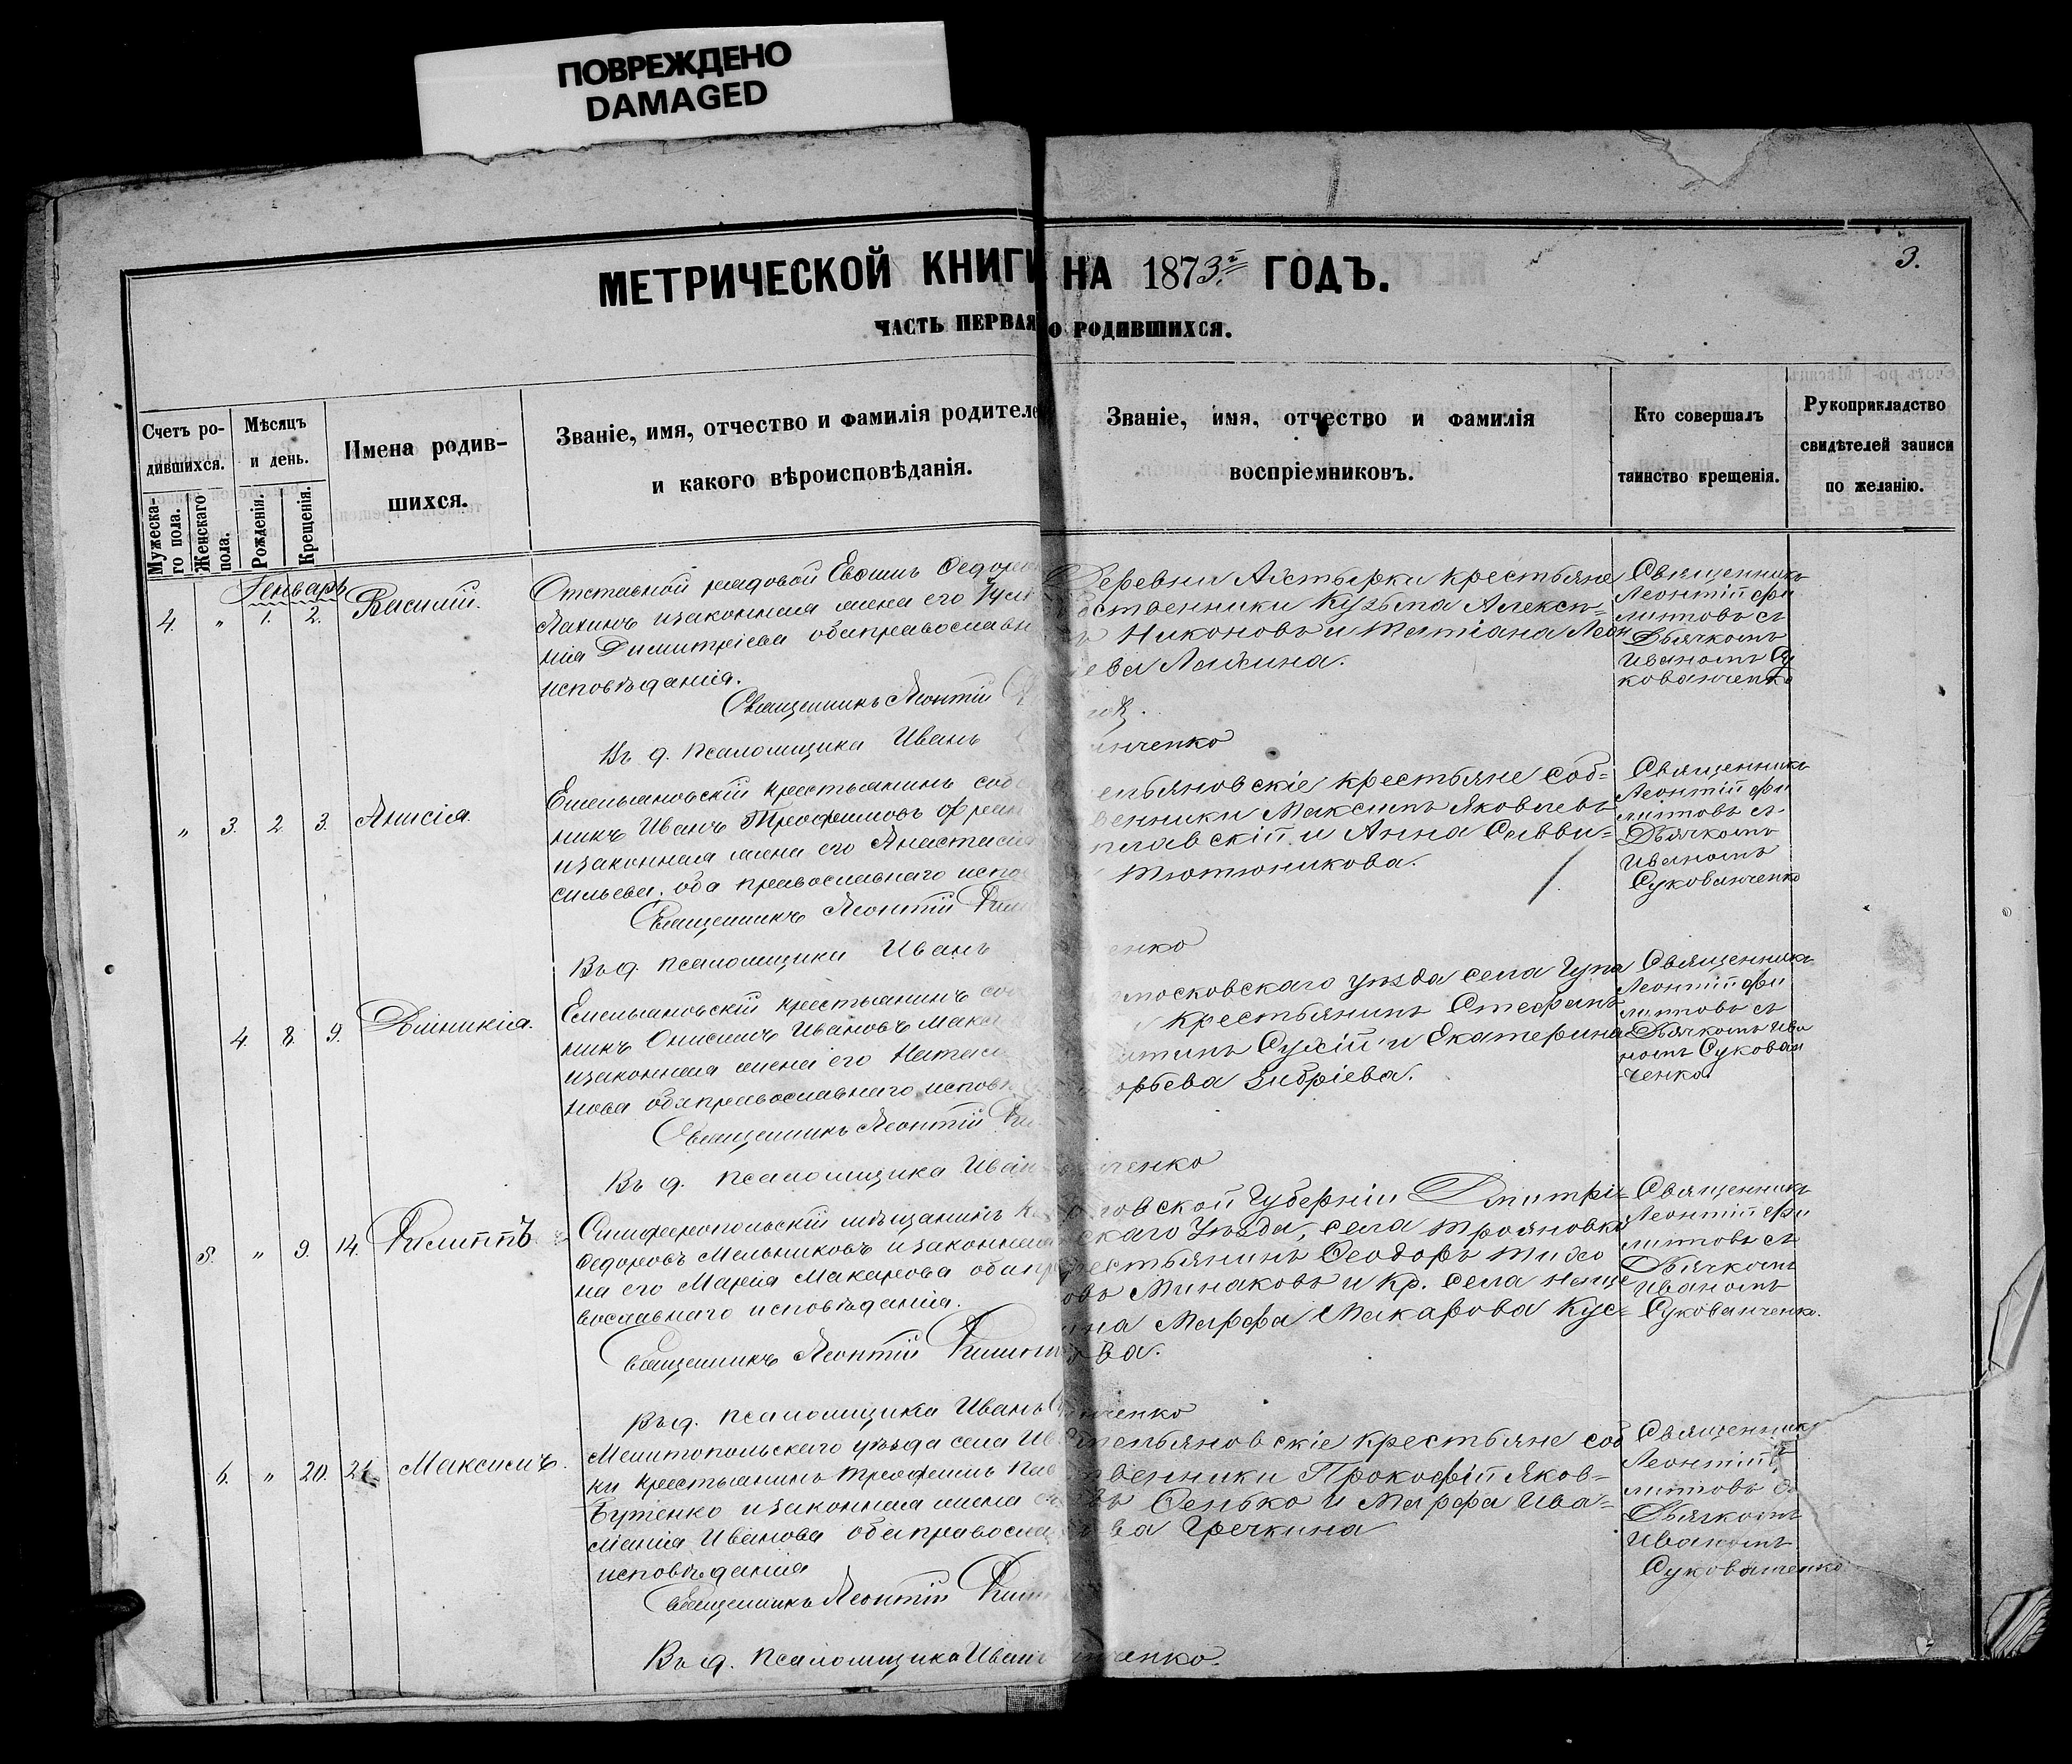 ПОВРЕЖДЕНО
DAMAGED
МЕТРИЧЕСКОЙ КНИГИ НА 1873й ГОДЪ.
3.
ЧАСТЬ ПЕРВАЯ О РОДИВШИХСЯ.
Счетъ ро-
дившихся.
Мужеска-
го пола.
Женскаго
пола.
Мѣсяцъ
и день.
Рожденія.
Крещенія.
Имена родив-
шихся.
Званіе, имя, отчество и фамилія родителе
и какого вѣроисповѣданія.
Званіе, имя, отчество и фамилія
воспріемниковъ.
Кто совершалъ
таинство крещенія.
Рукоприкладство
свидѣтелей записи
по желанію.
Генварь
4. " 1. 2. Василій.
Отставной рядовой Евфимъ Федоро
Лахинъ изаконная жена его
нія Димитріева обаправославн
исповѣданія.
Священникъ Леонтій
Въ д. псаломщика Иванъ
Деревни крестьяне
бственники Кузьма Алексѣ-
Никоновъ и Татіана Леон
ева
нченко
Священникъ
Леонтій Фи
липповъ съ
Дьячкомъ
Иваномъ Су
кованченко
" 3. 2 3. Анисія.
Емельяновскій крестьянинъ собс
никъ Иванъ Трофимовъ
изаконная жена его Анастасія
сильева. оба православнаго испо
Священникъ Леонтій Фил
Въ д. псаломщика Иванъ
ельяновскіе крестьяне соб=
венники Максимъ Яковлевъ
лавскій и Анна Савви=
Тютюникова.
енко
Священникъ
Леонтій Фи
липповъ съ
Дьячкомъ
Иваномъ
Сукованченко
4. 8. 9. Домникія.
Емельяновскій крестьянинъ соб
никъ Онисимъ Ивановъ Мака
изаконная жена его Натал
нова обаправославнаго исповѣ
Священникъ Леонтій Фи
Въ д. псаломщика Иван
московскаго уѣзда села Гупа
крестьянинъ Стефанъ
Сухій и Екатерина
орьева
ченко
Священникъ
Леонтій Фи
липповъ съ
Дьячкомъ Ива
номъ Сукован
ченко
5. " 9. 14. Филиппъ
Симферопольскій мѣщанинъ
Федоровъ Мельниковъ изаконная
на его Марія Макарова обапр
вославнаго исповѣданія.
Священникъ Леонтій Филипп
Въ д. псаломщика Иванъ
овской Губерніи Дмитрі=
скаго Уѣзда, села Трояновки
рестьянинъ Ѳеодоръ Тихо
овъ Минаковъ и Кр. села
Марфа Макарова Кус=
ва.
нченко
Священникъ
Леонтій Фи
липповъ съ
Дьячкомъ
Иваномъ
Сукованченко.
6. " 20. 21. Максимъ.
Мелитопольскаго уѣзда села Ив
ки крестьянинъ Трофимъ Пав
Бутенко изаконная жена
Иванова обаправосла
исповѣданія
Священникъ Леонтій Фили
Въ д. псаломщика Иванъ
мельяновскіе крестьяне соб
твенники Прокофій Яков=
въ Сенько и Марфа Ива=
ва Гречкина
ченко.
Священникъ
Леонтій
липповъ
Дьячкомъ
Иваномъ
Сукованченко